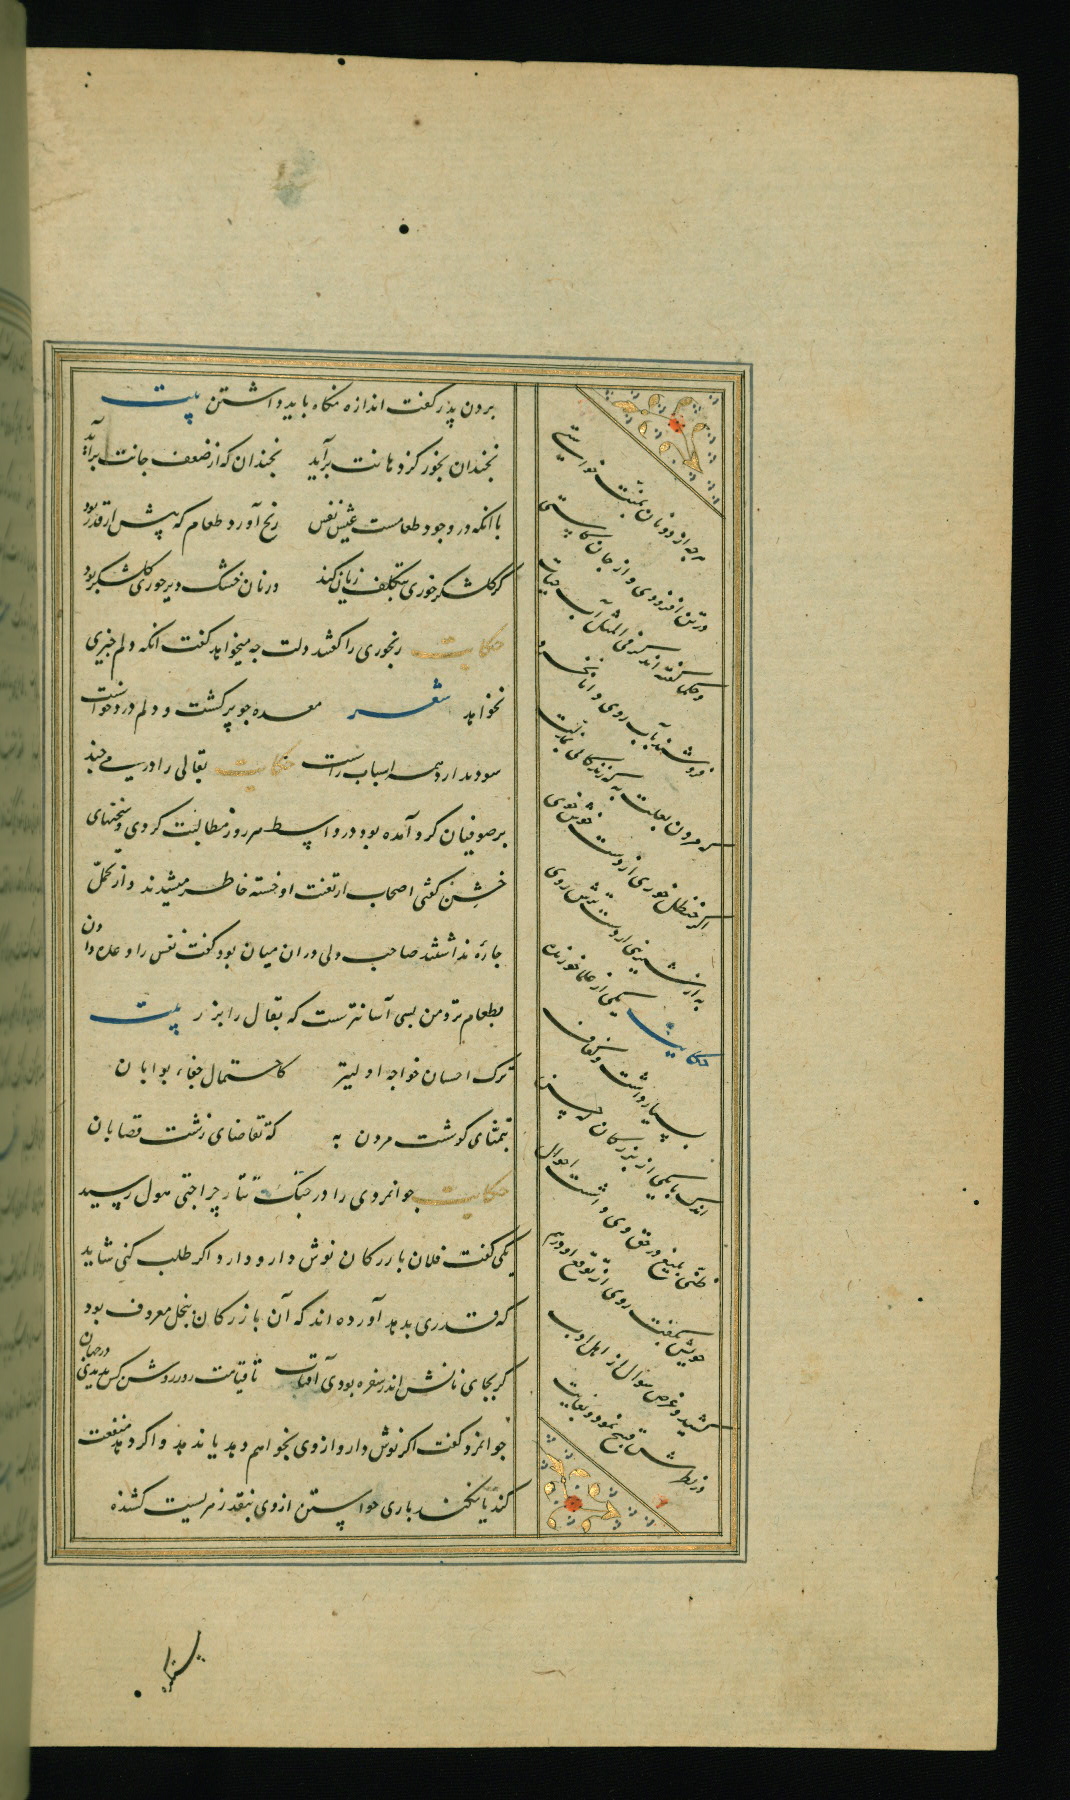 بردن پدر گفت اندازه نگاه باید داشتن بیت
نچندان بخور کز دهانت برآید نچندان که از ضعف جانت برآید
باانکه در وجود طعامست عیش نفس رنج آورد طعام که بیش از قدر بود
گر گلشکر خوری بتکلف زیان کند ور نان خشک دیر خوری گلشکر بود
حکایت رنجوری را گفتند دلت چه میخواهد گفت انکه دلم چیزی
نخواهد شعر معده چو پر گشت و دلم درد خواست
سود ندارد همه اسباب راست حکایت بقالی را درمی چند
بر صوفیان گرد آمده بود در واسط هر روز مطالبت کردی و سخنهای
خشن گفتی اصحاب از تعنت او خسته خاطر میشدند و از تحمل
چاره نداشتند صاحب دلی دران میان بود گفت نفس را وعده دادن
بطعام ترو من بسی آسانترست که بقال را بزر بیت
ترک احسان خواجه اولیتر کاحتمال جفاء بوابان
بتمنای گوشت مردن به که تقاضای زشت قصابان
حکایت جوانمردی را در جنگ تتار جراحتی هول رسید
یکی گفت فلان بازرگان نوش دارو دارد اگر طلب کنی شاید
که قدری بدهد آورده اند که آن بازرگان ببخل معروف بود
گر بجای نانش اندر سفره بودی آفتاب تا قیامت روز روشن کس ندیدی در جهان
جوانمرد گفت اگر نوش دارو ازوی بخواهم دهد یا ندهد و اگر دهد منفعت
کند یا نکند باری خواستن ازوی بنقد زهریست کشنده
هرچه از دونان بمنت خواستی
در تن افزودی و از جان کاستی
و حکما گفته اند گر فی المثل آب حیات
فروشند بآب روی دانا نخرد
که مردن بعلت به که زندگانی بمذلت
اگر حنظل خوری از دست خوش خوی
به از شیرینی از دست ترش روی
حکایت یکی از علما خورنده
بسیار داشت و کفاف
اندک با یکی از بزرگان که حسن
ظنی بلیغ در حق وی داشت احوال
خویش بگفت روی از توقع او درهم
کشید و عرض سوال از اهل ادب
در نظرش قبیح نمود و بغایت